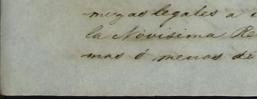 legales a
la Novísima Re
mas ó menos de